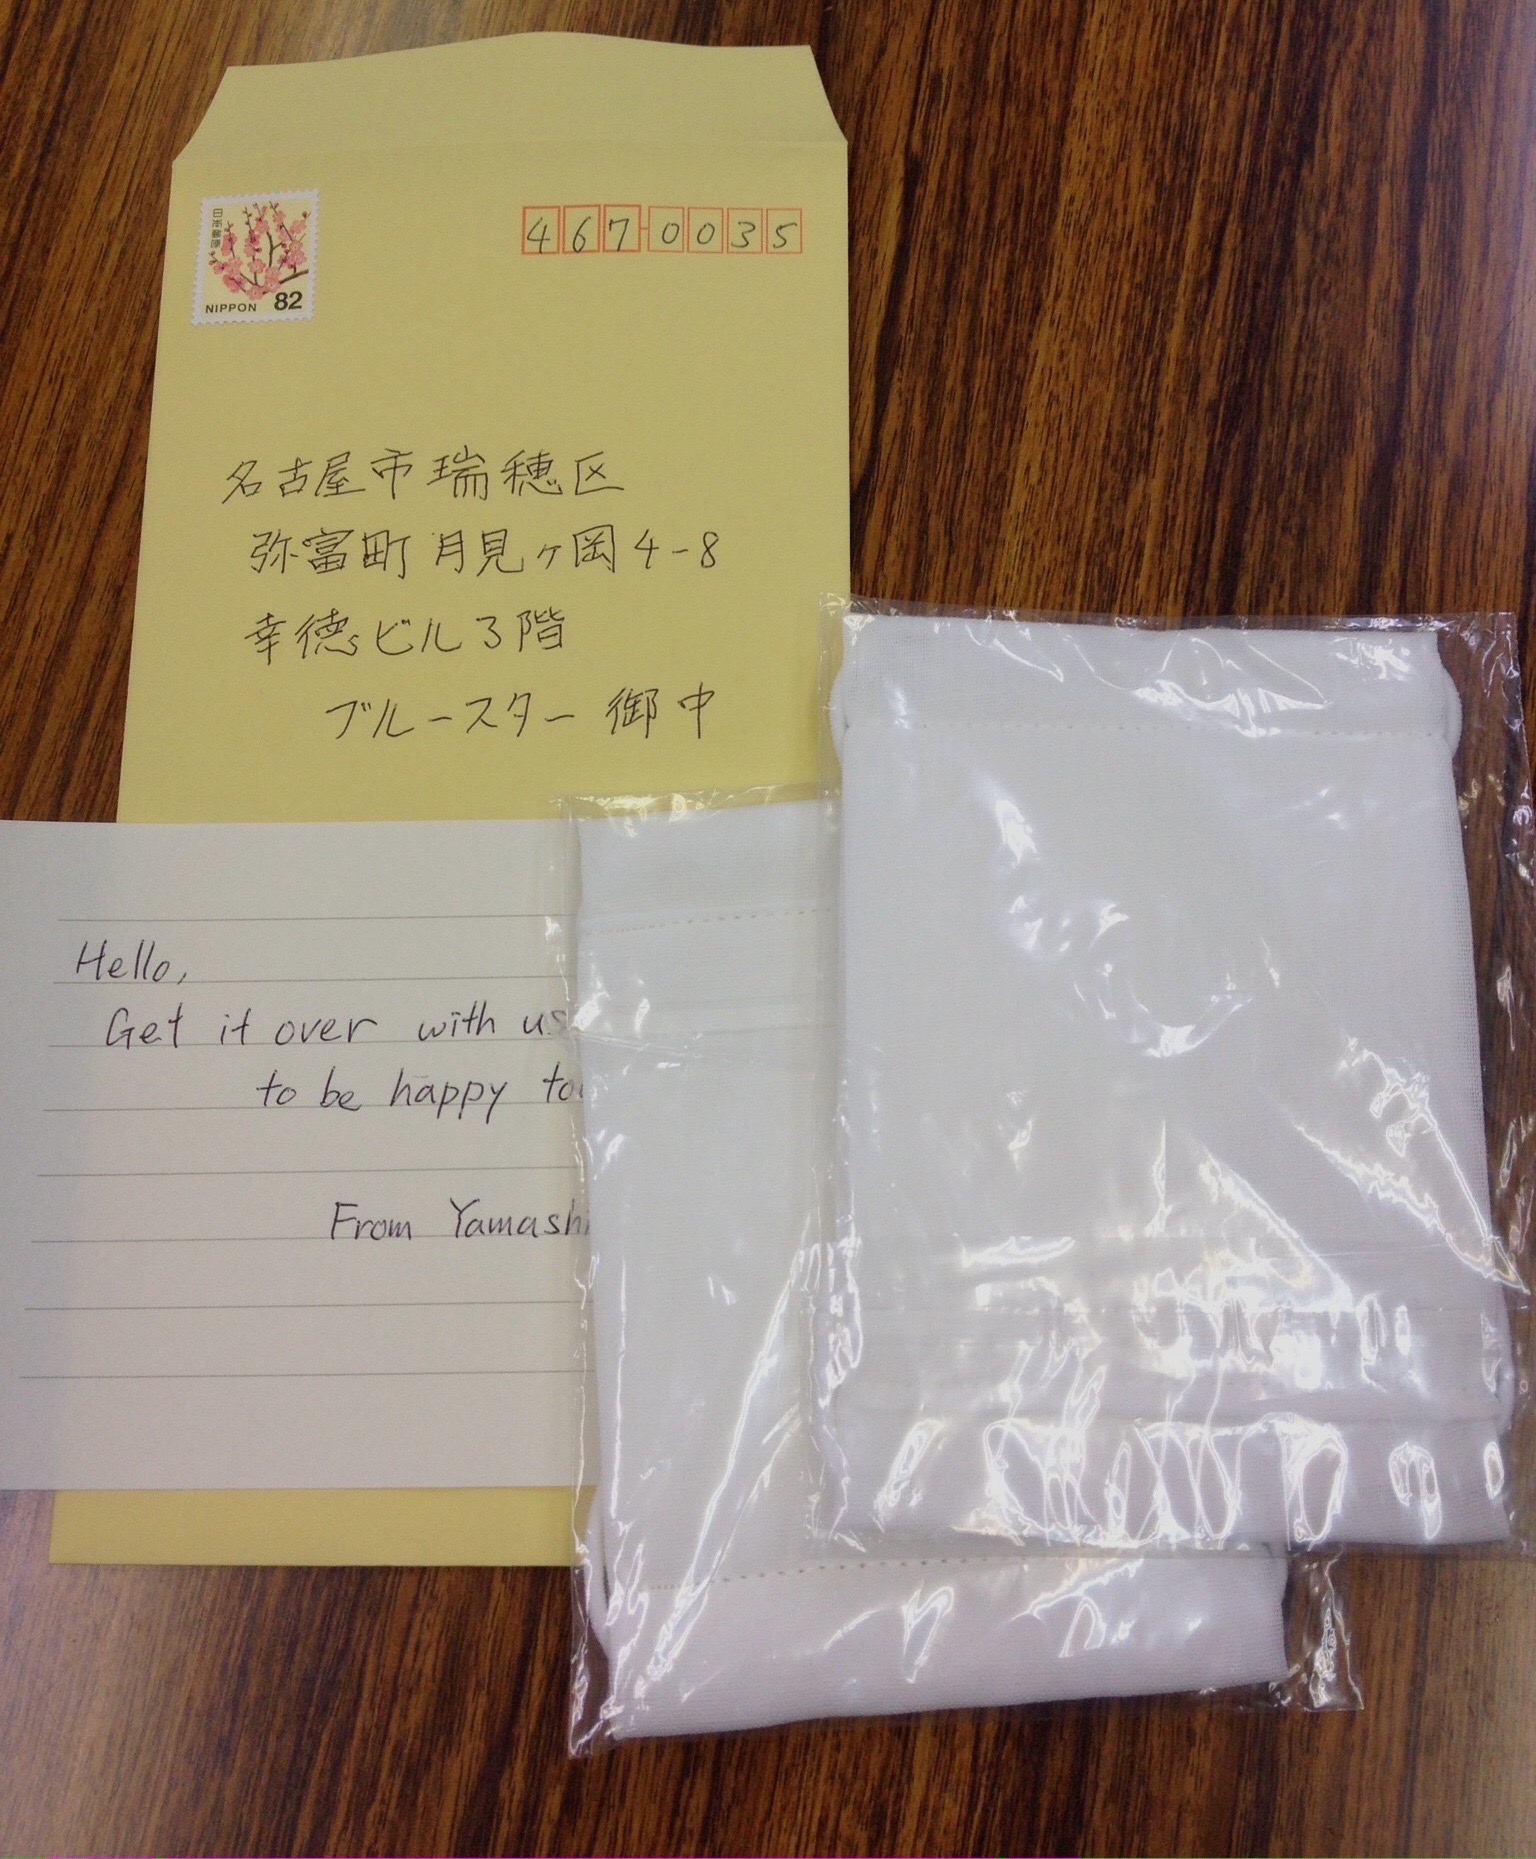 日本郵便
NIPPON 82
467-0035
名古屋市瑞穂区
弥富町月見ヶ岡4-8
幸徳sビル3階
ブルースター御中
Hello,
Get it over with us
to be happy
From Yamashi